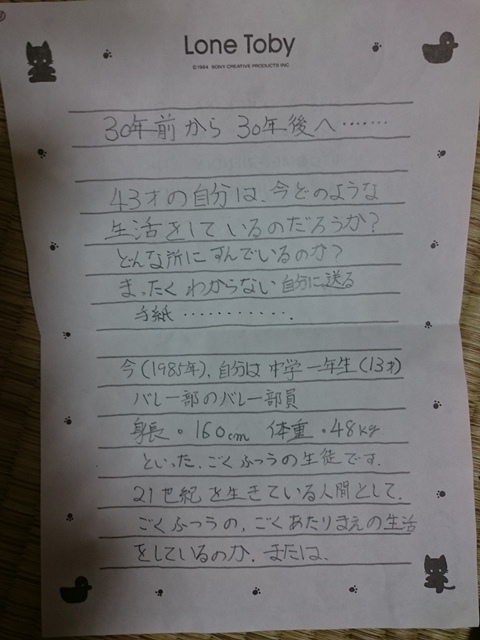 Lone Toby
©1984 SONY CREATIVE PRODUCTS INC.
30年前から 30年後へ‥‥‥
43才の自分は、今どのような
生活をしているのだろうか?
どんな所にすんでいるのか?
まったくわからない自分に送る
手紙‥‥‥‥‥‥.
今(1985年)、自分は中学一年生(13才)
バレー部のバレー部員
身長・160cm 体重・48kg
といった、ごくふつうの生徒です.
21世紀を生きている人間として、
ごくふつうの、ごくあたりまえの生活
をしているのか、または、